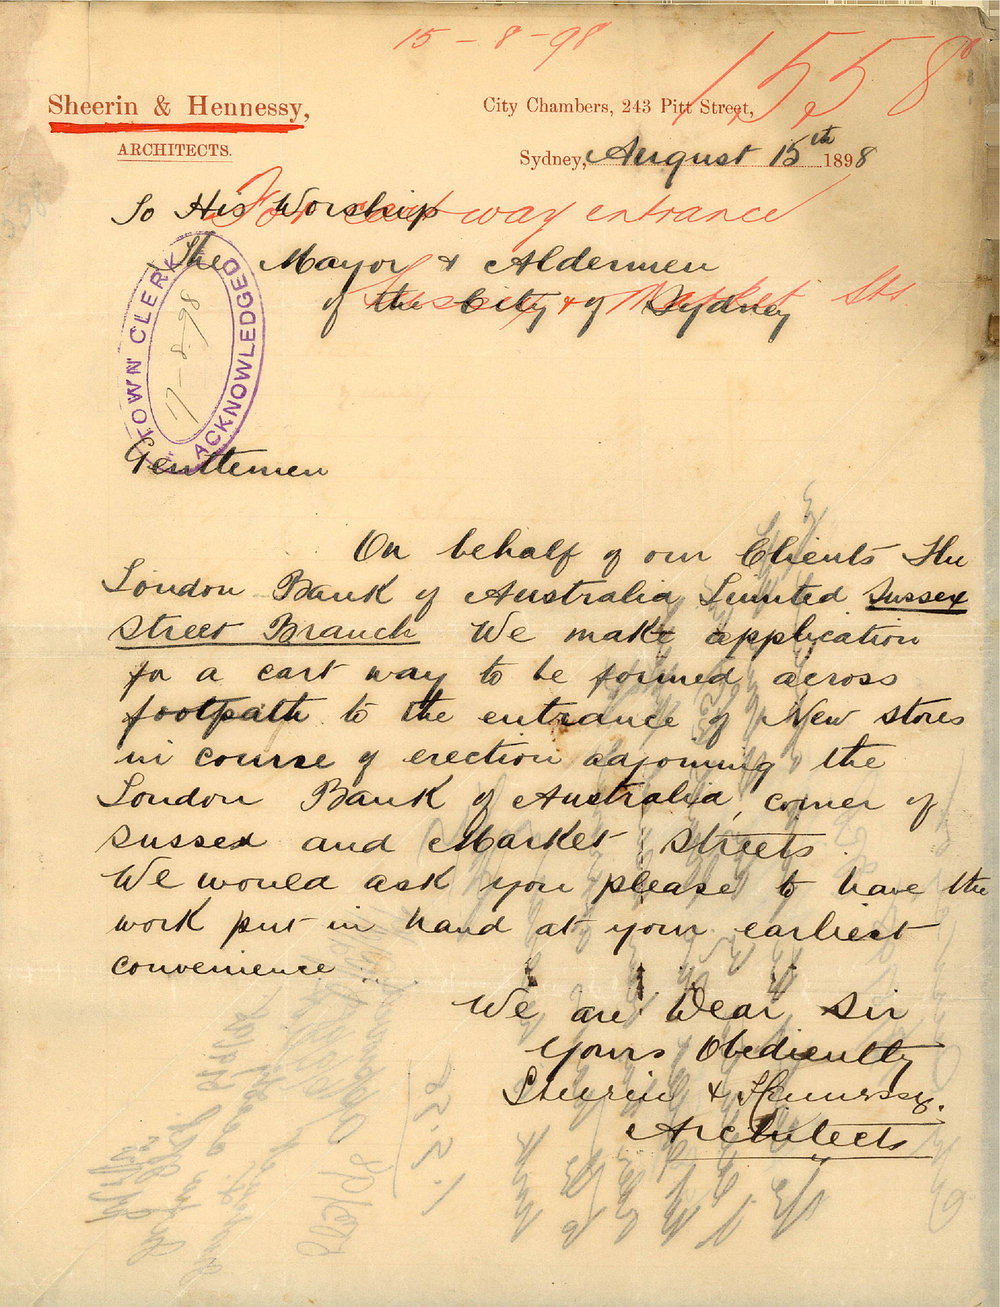 15-8-98
1558
Sheerin & Hennessy,
ARCHITECTS.
City Chambers, 243 Pitt Street,
Sydney, August 15th 1898
For cart way entrance
Sussex & Market Sts
To His Worship
The Mayor & Aldermen
of the City of Sydney
TOWN CLERK
17-8-98
ACKNOWLEDGED
Gentlemen
On behalf of our Clients The
London Bank of Australia Limited Sussex
Street Branch We make application
for a cart way to be formed across
footpath to the entrance of New stores
in course of erection adjoining the
London Bank of Australia, corner of
Sussex and Market Streets.
We would ask you please to have the
work put in hand at your earliest
convenience
We are Dear Sir
Yours Obediently
Sheerin & Hennessy.
Architects